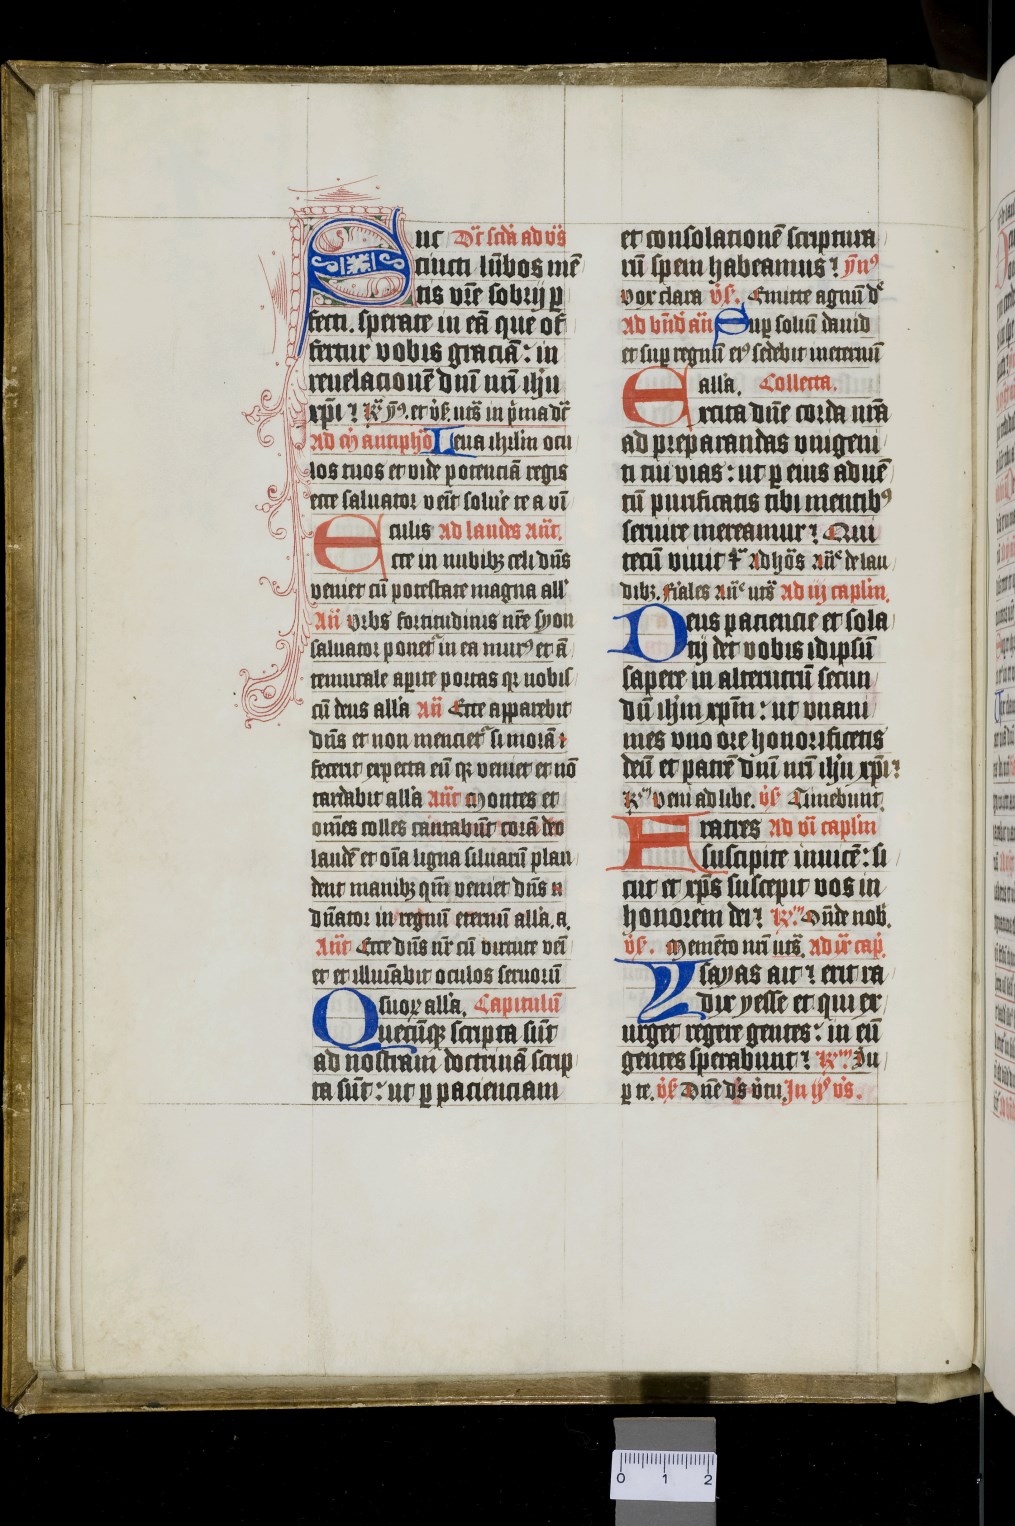 Suc Dn̄c scd̄a ad vs̄
cincti lūbos mē
tis vr̄e sobrij ꝑ
fecti. sperate in eā que of
fertur vobis graciā: in
reuelacionē dn̄i nr̄i ih̓u
xp̄i ⁊ R̄ ym̄ꝰ. et v̓s̓. uts̄ in p̓ma dn̄c
Ad m̄ antiph̄o Leua ih̓rl̓m ocu
los tuos et vide potenciā regis
ecce saluator ven̄t solu̓e te a vī
culis Ad laudes An̄t.
Ecce in nubibꝫ celi dn̄s
veniet cū potestate magna all̓
An̄ Vrbs fortitudinis nr̄e syon
saluator ponet᷑ in ea murꝰ et ā
temurale apite portas qꝛ nobis
cū deus all̓a An̄ Ecce apparebit
dn̄s et non menciet᷑ si morā
fecerit expecta eū qꝛ veniet et nō
tardabit all̓a An̄t Montes et
om̄es colles cantabūt corā deo
laudē et oīa ligna siluarū plau
dent manibꝫ qm̄ veniet dn̄s
dn̄ator in regnū eternū all̓a. a.
An̄t Ecce dn̄s nr̄ cū virtute ven̄
et et illuīabit oculos seruorū
suoꝝ all̓a. Capitulū
Quecūqꝫ scripta sūt
ad nostram doctrinā scrip
ta sūt: ut ꝑ pacienciam
et consolationē scriptura
rū spem habeamus ⁊ ym̄ꝰ
Vox clara v̓s̓. Emitte agnū dē
Ad bn̄d̓ an̄ Suꝑ soliū dauid
et suꝑ regnū eiꝰ sedebit ineternū
all̓a. Collecta.
Excita dn̄e corda nr̄a
ad preparandas vnigeni
ti tui vias: ut ꝑ eius aduē
tū purificatis tibi mentibꝰ
seruire mereamur ⁊ Qui
tecū viuit ⁊ᷓ Ad hōs an̄ᵉ de lau
dibꝫ. F̓iales an̄ᵉ uts̄ Ad iij capl̓m.
Deus paciencie et sola
tij det vobis idipsū
sapere in alterutrū secun
dū ih̓m xp̄m: ut vnani
mes vno ore honorificetis
deū et patrē dn̄i nr̄i ih̓u xp̄i ⁊
R̄ᵐ Veni ad libe. v̓s̓ Timebunt.
Fratres Ad vi capl̓m
suscipite inuicē: si
cut et xp̄s suscepit vos in
honorem dei ⁊ R̄ᵐ Ōnde nob̓.
v̓s̓. Memēto nr̄i uts̄. Ad ix̄ cap̓.
Ysayas ait ⁊ erit ra
dix yesse et qui ex
urget regere gentes: in eū
gentes sperabunt ⁊ R̄ᵐ Su
ꝑ te. v̓s̓ Dn̄e ds̄ v̓tu. In ijs̓ vs̄.